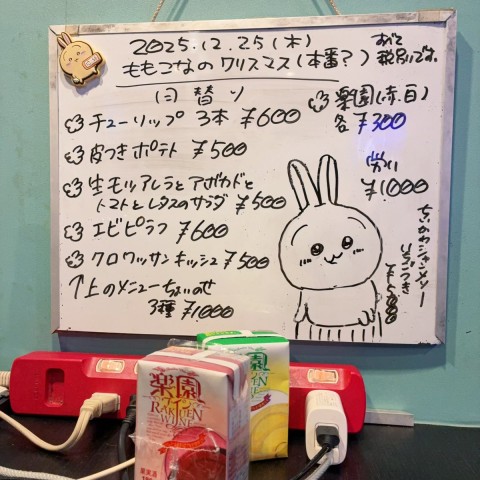 2025.12.25(木)
ももこなのクリスマス(本番?)
あげて
税別です。
日替り
チューリップ 3本 ¥600
皮つきポテト ¥500
生モッツァレラとアボカドと
トマトとレタスのサラダ ¥500
エビピラフ ¥600
クロワッサンキッシュ ¥500
↑上のメニューちょいのせ
3種 ¥1,000
楽園(赤・白)
各 ¥300
¥1,000
ちいかわシャンメリー
楽園
RAKUEN
WINE
楽園